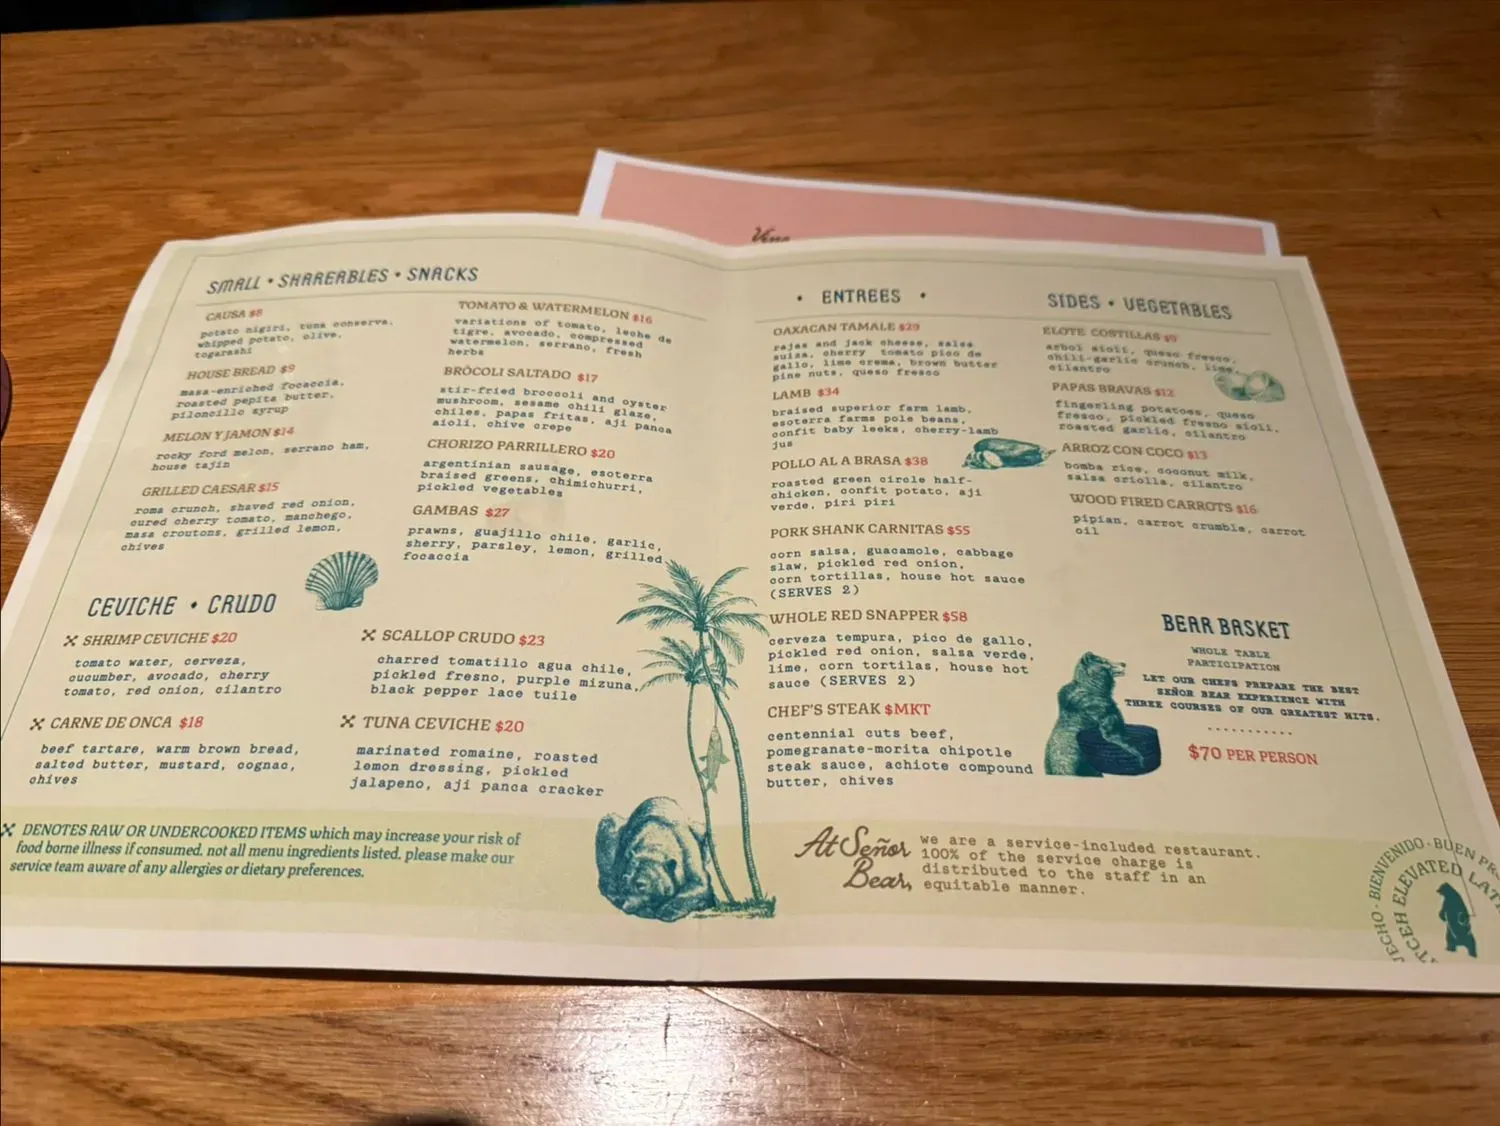 SMALL • SHAREABLES • SNACKS
CAUSA $8
potato nigiri, tuna conserva,
whipped potato, olive,
togarashi
HOUSE BREAD $9
masa-enriched focaccia,
roasted pepita butter,
piloncillo syrup
MELON Y JAMON $14
rocky ford melon, serrano ham,
house tajin
GRILLED CAESAR $15
roma crunch, shaved red onion,
cured cherry tomato, manchego,
masa croutons, grilled lemon,
chives
TOMATO & WATERMELON $16
variations of tomato, leche de
tigre, avocado, compressed
watermelon, serrano, fresh
herbs
BRÓCOLI SALTADO $17
stir-fried broccoli and oyster
mushroom, sesame chili glaze,
chiles, papas fritas, aji panca
aioli, chive crepe
CHORIZO PARRILLERO $20
argentinian sausage, esoterra
braised greens, chimichurri,
pickled vegetables
GAMBAS $27
prawns, guajillo chile, garlic,
sherry, parsley, lemon, grilled
focaccia
CEVICHE • CRUDO
SHRIMP CEVICHE $20
tomato water, cerveza,
cucumber, avocado, cherry
tomato, red onion, cilantro
CARNE DE ONCA $18
beef tartare, warm brown bread,
salted butter, mustard, cognac,
chives
SCALLOP CRUDO $23
charred tomatillo agua chile,
pickled fresno, purple mizuna,
black pepper lace tuile
TUNA CEVICHE $20
marinated romaine, roasted
lemon dressing, pickled
jalapeno, aji panca cracker
DENOTES RAW OR UNDERCOOKED ITEMS which may increase your risk of
food borne illness if consumed. not all menu ingredients listed. please make our
service team aware of any allergies or dietary preferences.
• ENTREES •
OAXACAN TAMALE $29
rajas and jack cheese, salsa
suiza, cherry tomato pico de
gallo, lime crema, brown butter
pine nuts, queso fresco
LAMB $34
braised superior farm lamb,
esoterra farms pole beans,
confit baby leeks, cherry-lamb
jus
POLLO AL A BRASA $38
roasted green circle half-
chicken, confit potato, aji
verde, piri piri
PORK SHANK CARNITAS $55
corn salsa, guacamole, cabbage
slaw, pickled red onion,
corn tortillas, house hot sauce
(SERVES 2)
WHOLE RED SNAPPER $58
cerveza tempura, pico de gallo,
pickled red onion, salsa verde,
lime, corn tortilas, house hot
sauce (SERVES 2)
CHEF'S STEAK $MKT
centennial cuts beef,
pomegranate-morita chipotle
steak sauce, achiote compound
butter, chives
SIDES • VEGETABLES
ELOTE COSTILLAS $9
arbol aioli, queso fresco,
chili-garlic crunch, lime,
cilantro
PAPAS BRAVAS $12
fingerling potatoes, queso
fresco, pickled fresno aioli,
roasted garlic, cilantro
ARROZ CON COCO $13
bomba rice, coconut milk,
salsa criolla, cilantro
WOOD FIRED CARROTS $16
pipian, carrot crumble, carrot
oil
BEAR BASKET
WHOLE TABLE
PARTICIPATION
LET OUR CHEFS PREPARE THE BEST
SEÑOR BEAR EXPERIENCE WITH
THREE COURSES OF OUR GREATEST HITS.
$70 PER PERSON
At Señor
Bear,
we are a service-included restaurant.
100% of the service charge is
distributed to the staff in an
equitable manner.
BIENVENIDO • BUEN
ELEVATED